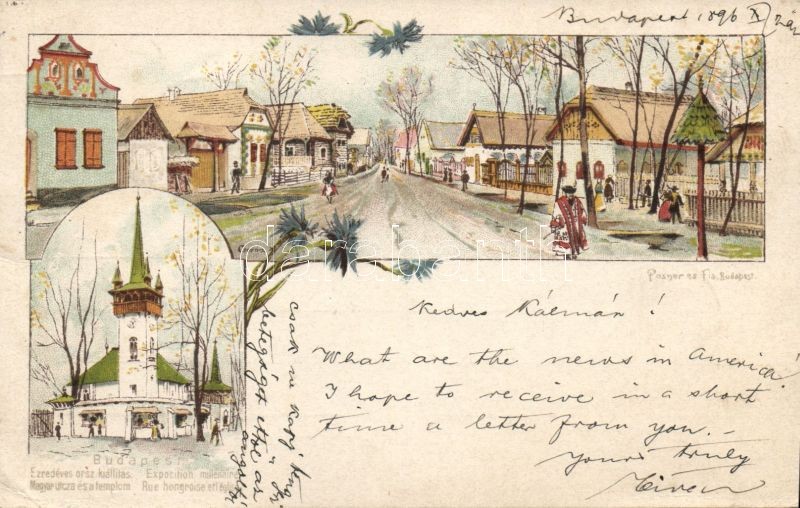 Budapest 1896 X/2
Posner és Fia, Budapest.
Kedves Kálmán!
What are the news in America!
I hope to receive in a short
time a letter from you.—
Yours truly
csak ne kapj
betegágyt ettől az
angoltól
Budapest
Ezredéves orsz. kiállítás. Exposition millénaire
Magyar utcza és a templom Rue hongroise et l'église
darabanth